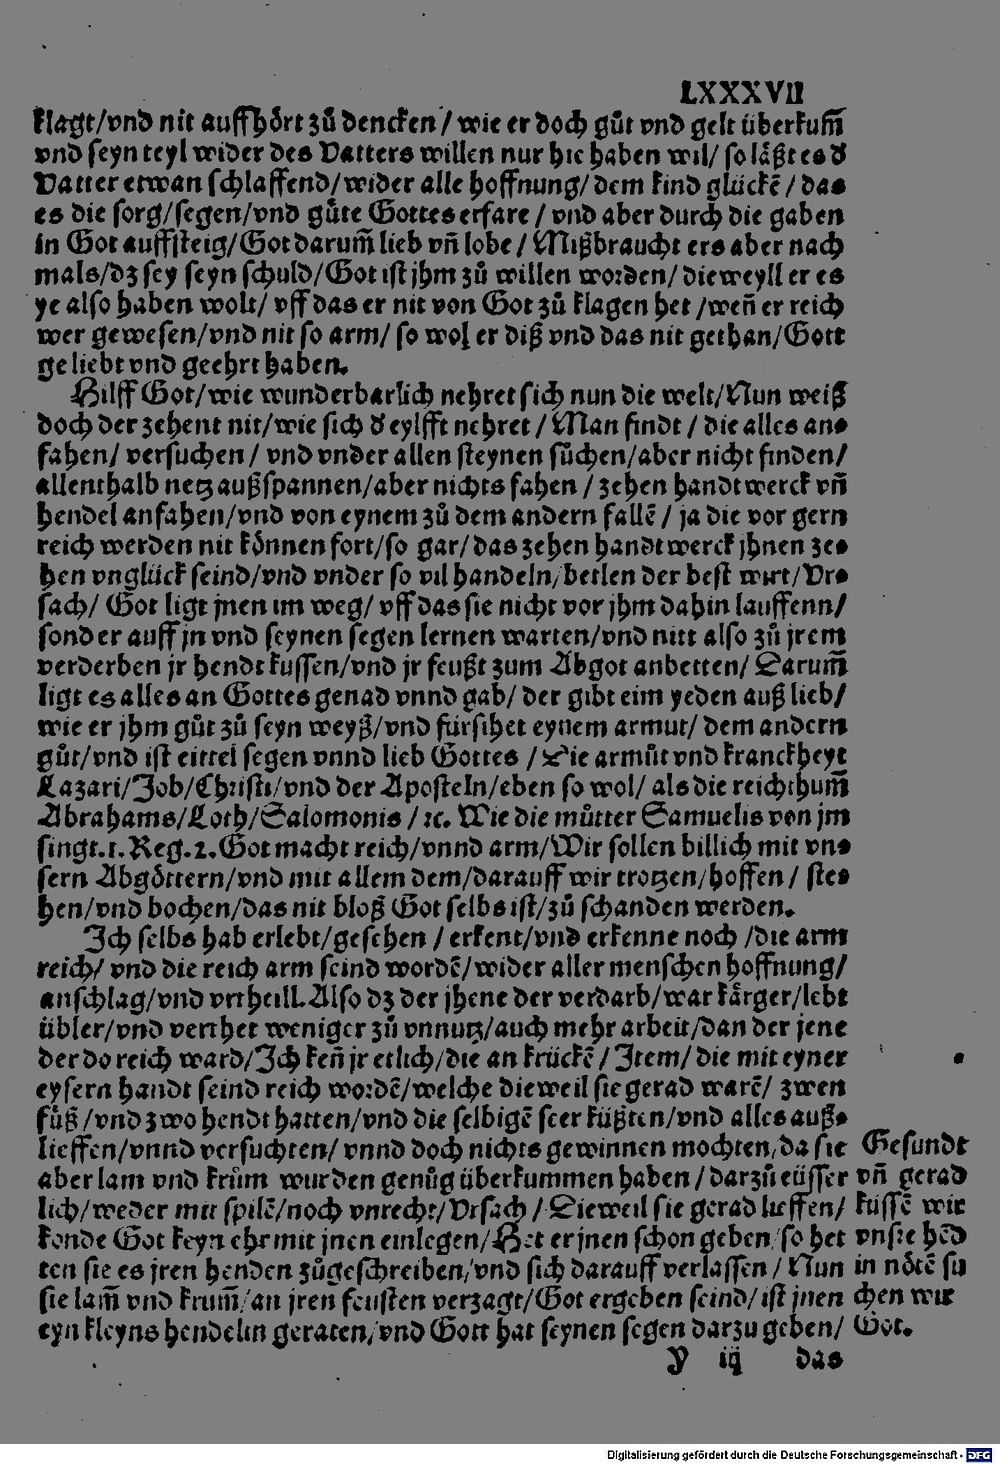 LXXXVII
klagt/vnd nit auffhört zů dencken/ wie er doch gůt vnd gelt überkum̃
vnd seyn teyl wider des Vatters willen nur hie haben wil/ so läßt es d̕
Vatter etwan schlaffend/wider alle hoffnung/dem kind glückẽ/das
es die sorg/segen/vnd gůte Gottes erfare/ vnd aber durch die gaben
in Got auffsteig/Got darum̃ lieb vñ lobe/ Mißbraucht ers aber nach
mals/dz sey seyn schuld/Got ist jhm zů willen worden/ dieweyll er es
ye also haben wolt/ vff das er nit von Got zů klagen het/weñ er reich
wer gewesen/vnd nit so arm/ so wol er diß vnd das nit gethan/Gott
geliebt vnd geehrt haben.
Hilff Got/wie wunderbarlich nehret sich nun die welt/Nun weiß
doch der zehent nit/wie sich d̕ eylfft nehret/Man findt/ die alles an-
fahen/ versuchen/ vnd vnder allen steynen sůchen/aber nicht finden/
allenthalb netz außspannen/aber nichts fahen/ zehen handtwerck vñ
hendel anfahen/vnd von eynem zů dem andern fallẽ/ ja die vor gern
reich werden nit können fort/so gar/das zehen handtwerck jhnen ze-
hen vnglück seind/vnd vnder so vil handeln/betlen der best wirt/Vr-
sach/ Got ligt jnen im weg/ vff das sie nicht vor jhm dahin lauffenn/
sonder auff jn vnd seynen segen lernen warten/vnd nitt also zů jrem
verderben jr hendt kussen/vnd jr feußt zum Abgot anbetten/ Darum̃
ligt es alles an Gottes genad vnnd gab/ der gibt eim yeden auß lieb/
wie er jhm gůt zů seyn weyß/vnd fürsihet eynem armut/ dem andern
gůt/vnd ist eittel segen vnnd lieb Gottes/Die armůt vnd kranckheyt
Lazari/Job/Christi/vnd der Aposteln/eben so wol/ als die reichthum̃
Abrahams/Loth/Salomonis/ ꝛc. Wie die můtter Samuelis von jm
singt.1.Reg.2.Got macht reich/vnnd arm/Wir sollen billich mit vn-
sern Abgöttern/vnd mit allem dem/darauff wir trotzen/hoffen/ ste-
hen/vnd bochen/das nit bloß Got selbs ist/zů schanden werden.
Ich selbs hab erlebt/gesehen/ erkent/vnd erkenne noch/die arm
reich/ vnd die reich arm seind wordẽ/wider aller menschen hoffnung/
anschlag/vnd vrtheill.Also dz der jhene der verdarb/war kärger/lebt
übler/vnd verthet weniger zů vnnutz/auch mehr arbeit/dan der jene
der do reich ward/Ich keñ jr etlich/die an krückẽ/Item/ die mit eyner
eysern handt seind reich wordẽ/welche dieweil sie gerad warẽ/ zwen
füß/vnd zwo hendt hatten/vnd die selbigẽ seer küßten/vnd alles auß-
lieffen/vnnd versuchten/ vnnd doch nichts gewinnen mochten/da sie
aber lam vnd krům wurden genůg überkummen haben/darzů eüsser
lich/weder mit spilẽ/noch vnrecht/Vrsach/Dieweil sie gerad lieffen/
konde Got keyn ehr mit jnen einlegen/Het er jnen schon geben/so het
ten sie es jren henden zůgeschreiben/vnd sich darauff verlassen/Nun
sie lam̃ vnd krum̃/an jren feusten verzagt/Got ergeben seind/ist jnen
eyn kleyns hendelin geraten/vnd Gott hat seynen segen darzu geben/
Gesundt
vñ gerad
küssẽ wir
vnsre hẽd
in nötẽ sů
chen wir
Got.
Y iij das
Digitalisierung gefördert durch die Deutsche Forschungsgemeinschaft - DFG